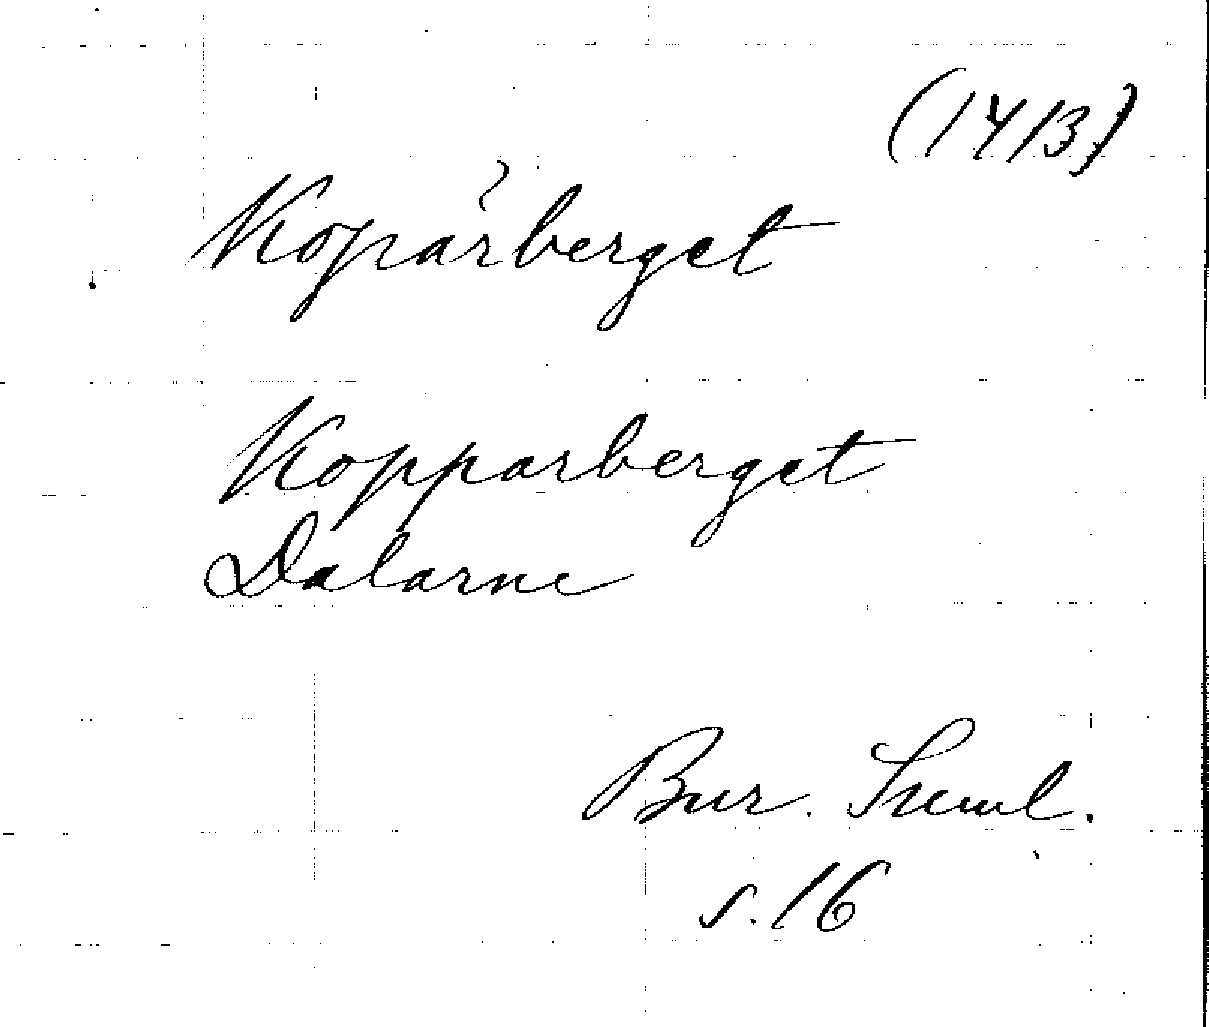 (1413)
Koparberget
Kopparberget
Dalarne
Bur. Suml.
s. 16